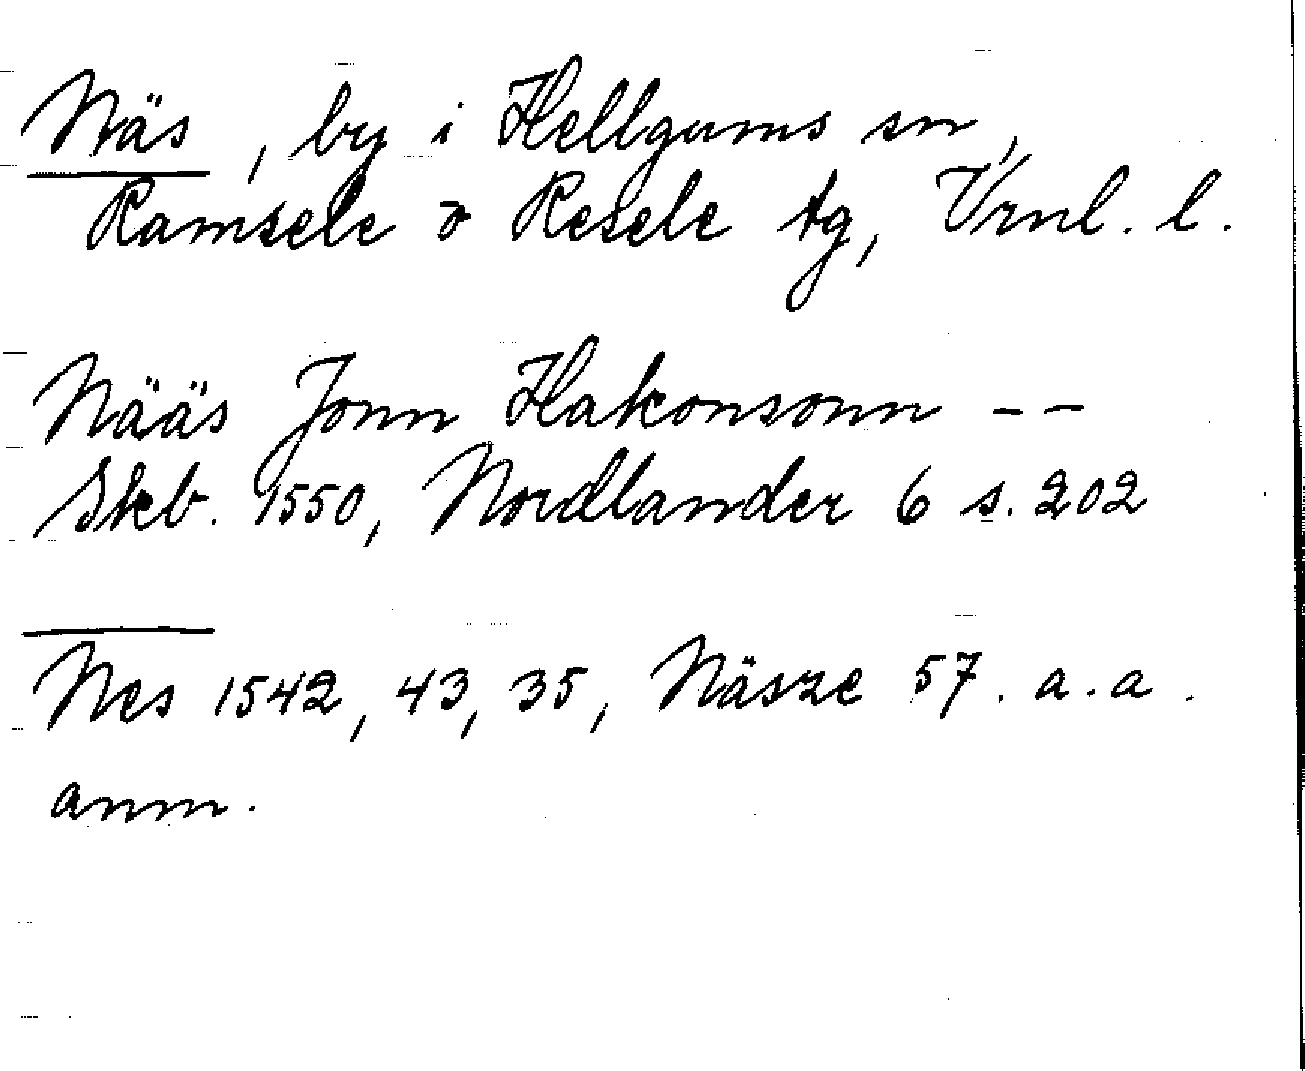 Näs, by i Hellgums sn,
Ramsele o Resele tg, Vrnl. l.
Nääs Jonn Hakonsonn --
Skb. 1550, Nordlander 6 s. 202
Nes 1542, 43, 35, Näsze 57. a.a.
anm.